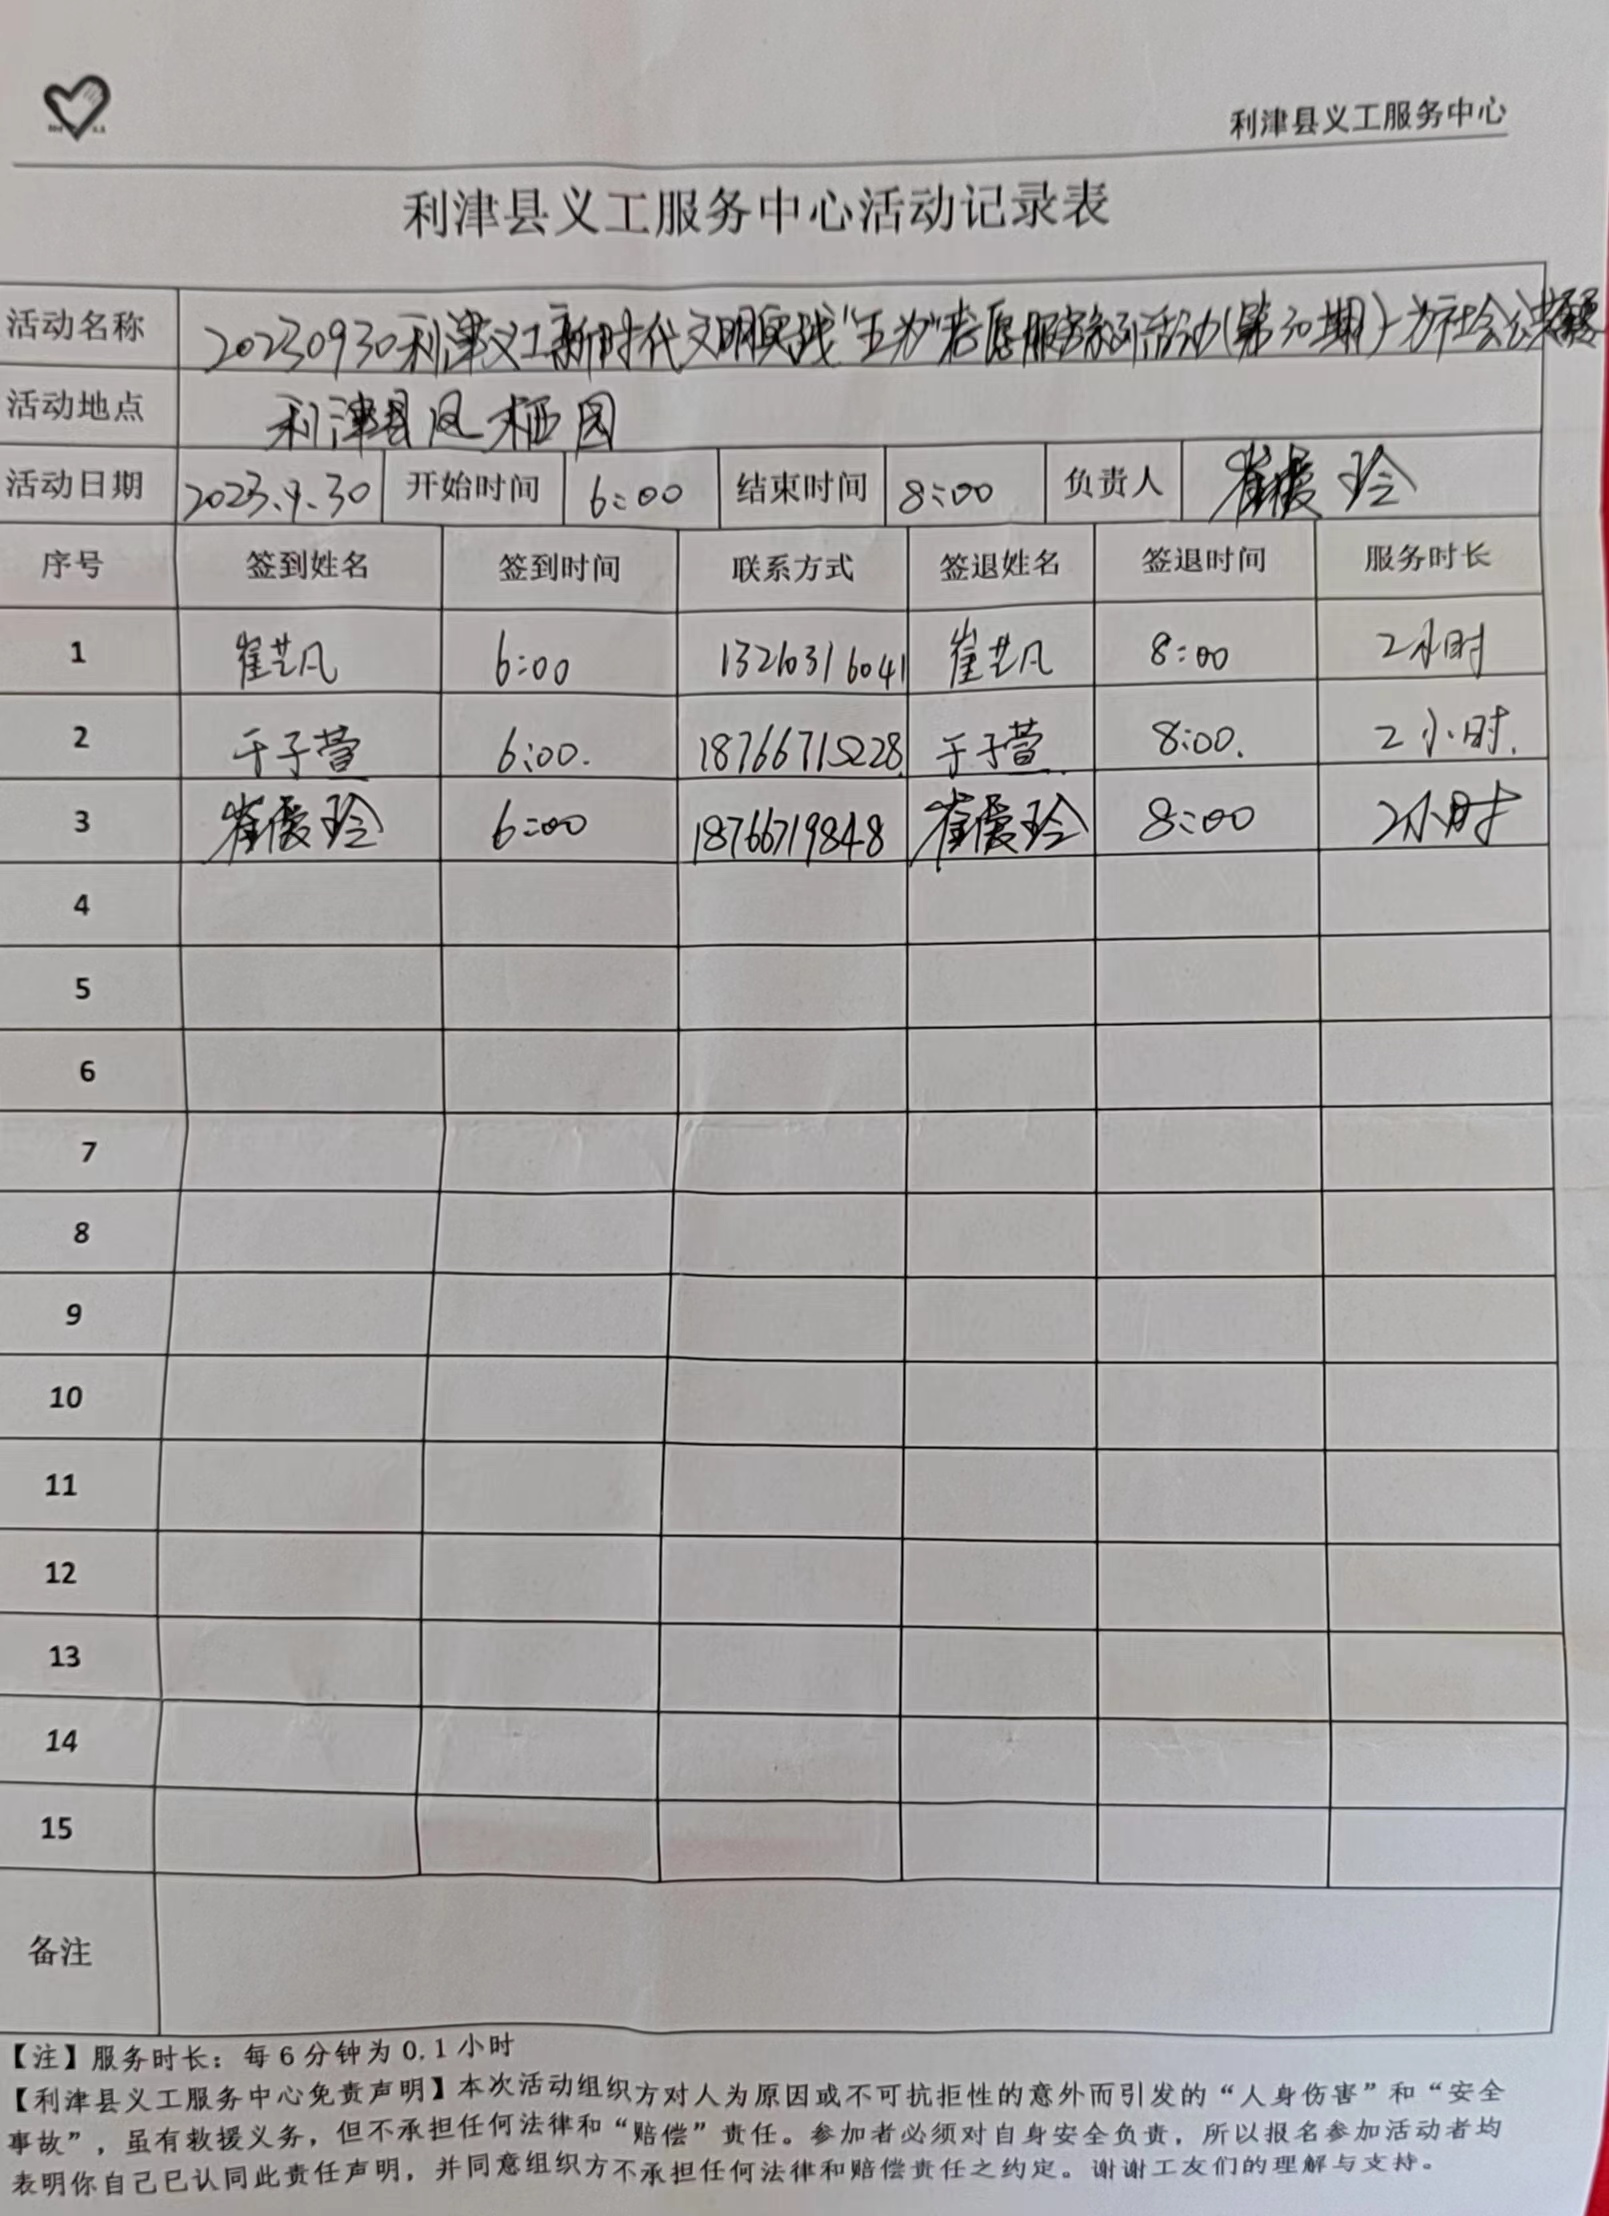 利津县义工服务中心
利津县义工服务中心活动记录表
活动名称 20230930利津义工新时代文明实践"五为"志愿服务系列活动(第30期)-为社会公共
活动地点 利津县凤栖园
活动日期 2023.9.30 开始时间 6:00 结束时间 8:00 负责人 崔爱玲
序号 签到姓名 签到时间 联系方式 签退姓名 签退时间 服务时长
1 崔艺凡 6:00 13261316041 崔艺凡 8:00 2小时
2 于子萱 6:00. 18766715228 于子萱. 8:00. 2小时.
3 崔爱玲 6:00 18766719848 崔爱玲 8:00 2小时
4
5
6
7
8
9
10
11
12
13
14
15
备注
【注】服务时长：每6分钟为0.1小时
【利津县义工服务中心免责声明】本次活动组织方对人为原因或不可抗拒性的意外而引发的“人身伤害”和“安全
事故”，虽有救援义务，但不承担任何法律和“赔偿”责任。参加者必须对自身安全负责，所以报名参加活动者均
表明你自己已认同此责任声明，并同意组织方不承担任何法律和赔偿责任之约定。谢谢工友们的理解与支持。